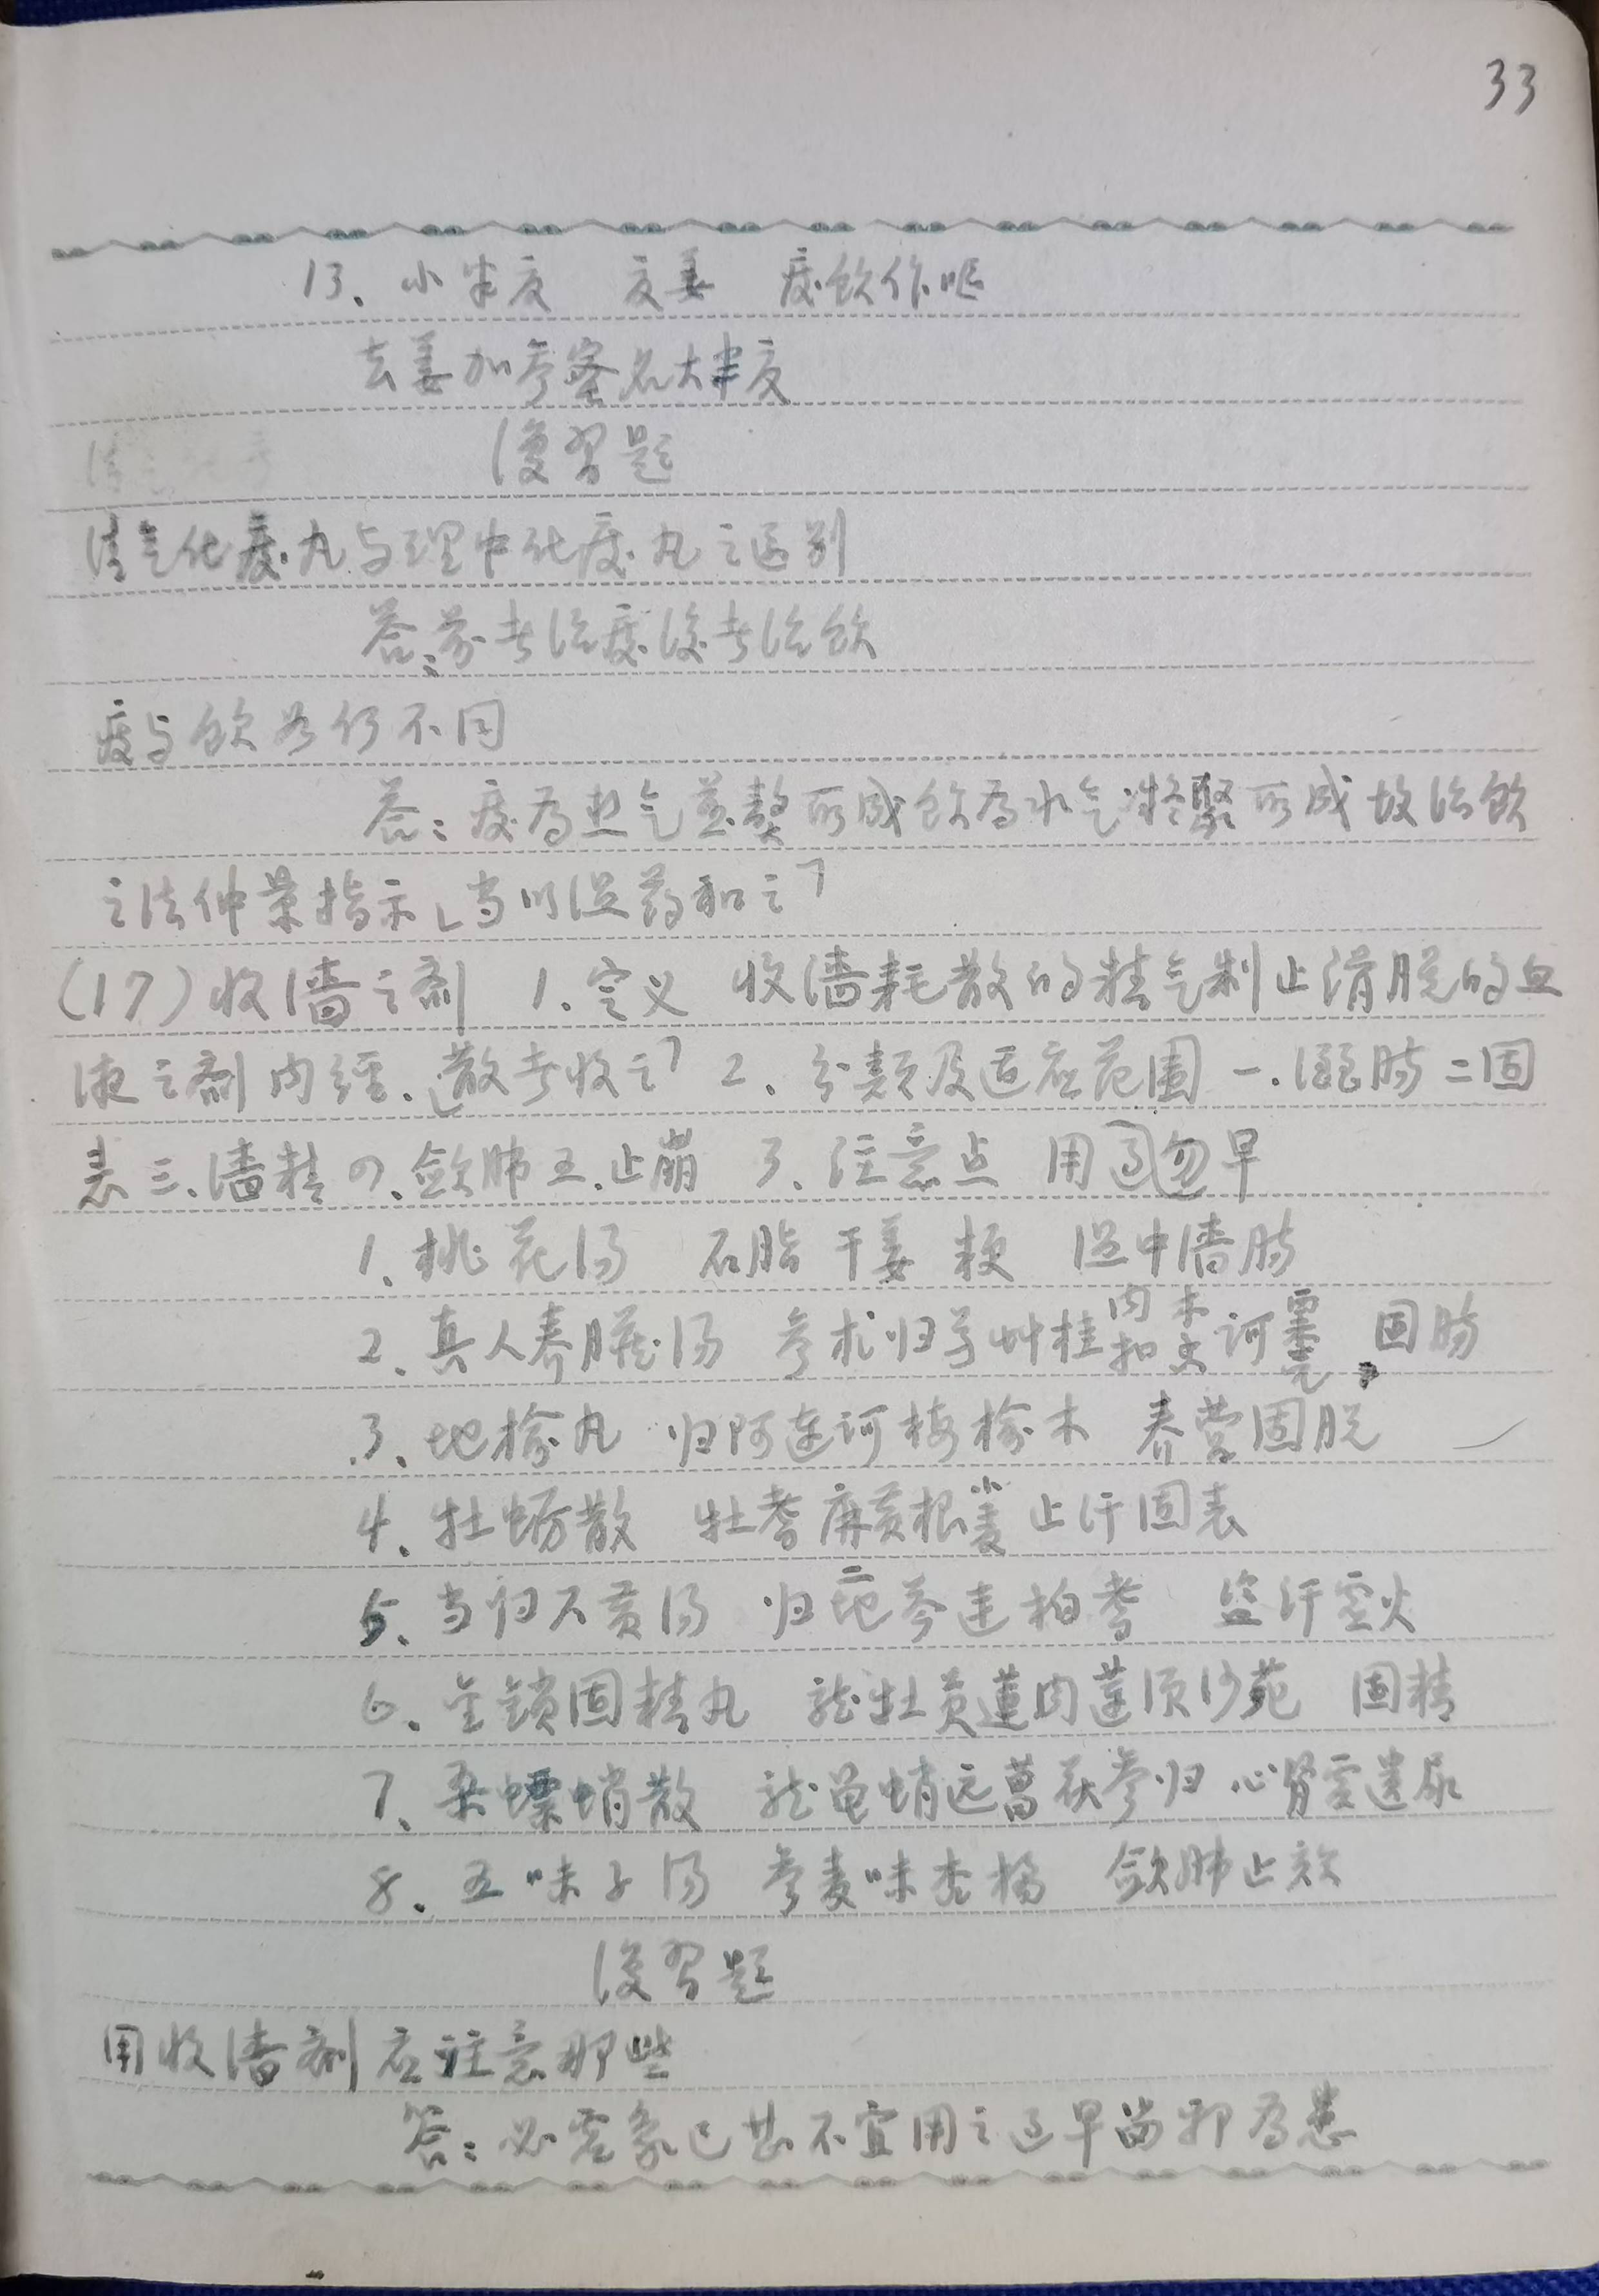 33
13、小半夏 夏姜 痰飲作嘔
去姜加参蜜名大半夏
復習題
清气化痰丸与理中化痰丸之区别
答:前者治痰後者治飲
痰与飲为何不同
答:痰為热气蒸熬所成飲為水气凝聚所成故治飲
之法仲景指示「当以温药和之」
(17)收濇之剂 1.定义 收濇耗散的精气制止滑脱的血
液之剂 内經.「散者收之」 2.分類及适应范圍 一.濇腸 二固
表 三、濇精 四、斂肺 五.止崩 3、注意点 用勿早
1、桃花汤 石脂 干姜 粳 温中濇肠
2、真人养臟汤 参术归芍草桂肉扣木 诃罂壳 固肠
3、地榆丸 归阿連诃梅榆木 养营固脱
4、牡蛎散 牡耆麻黄根小麦 止汗固表
5、当归六黄汤 归二地芩連柏耆 盗汗虚火
6、金锁固精丸 龙牡芡蓮肉蓮须沙苑 固精
7、桑螵蛸散 龙龟蛸远菖茯参归 心肾虚遗尿
8、五味子汤 参麦味杏橘 斂肺止咳
復習題
用收濇剂应注意那些
答:必虚象已甚不宜用之过早留邪為患